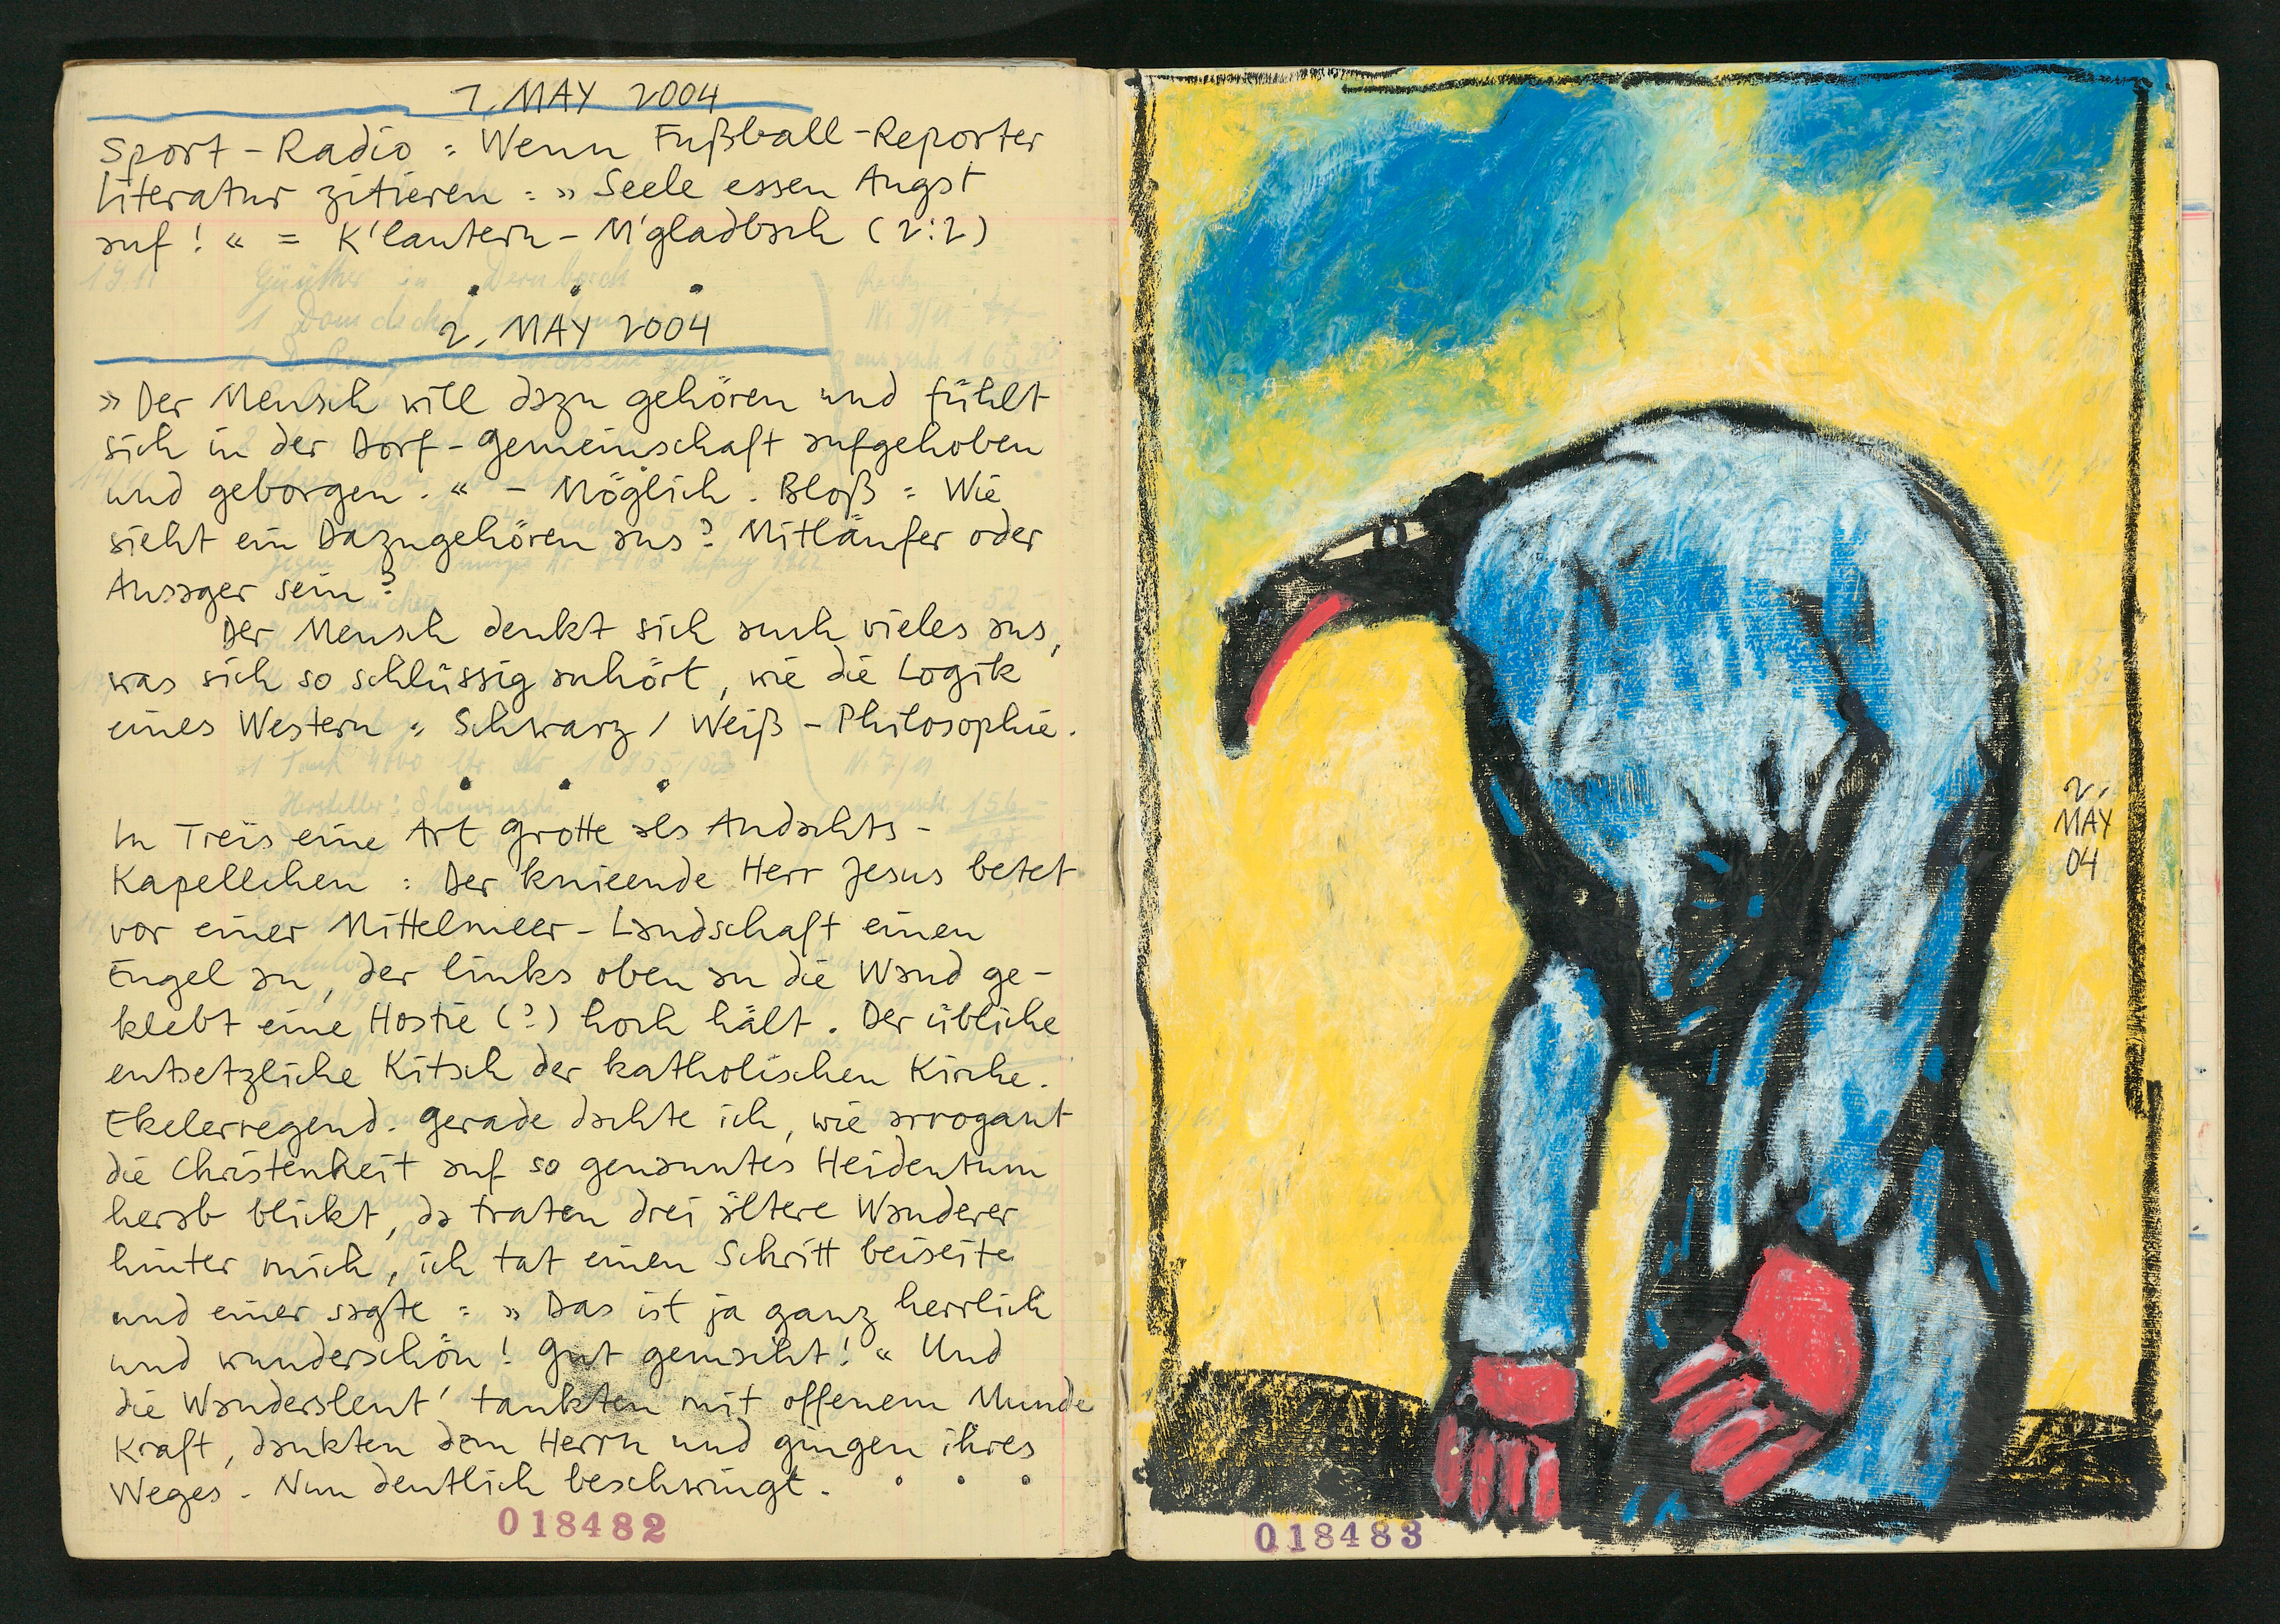 1. MAY 2004
Sport-Radio: Wenn Fußball-Reporter
Literatur zitieren: » Seele essen Angst
auf! « = K'lautern - M'gladbach (2:2)
. . .
2. MAY 2004
» Der Mensch will dazu gehören und fühlt
sich in der Dorf-Gemeinschaft aufgehoben
und geborgen. « - Möglich. Bloß: Wie
sieht ein Dazugehören aus? Mitläufer oder
Ansager sein?
Der Mensch denkt sich auch vieles aus,
was sich so schlüssig anhört, wie die Logik
eines Western: Schwarz / Weiß - Philosophie.
. . .
In Treis eine Art Grotte als Andachts-
Kapellchen: Der knieende Herr Jesus betet
vor einer Mittelmeer-Landschaft einen
Engel an, der links oben an die Wand ge-
klebt eine Hostie (?) hoch hält. Der übliche
entsetzliche Kitsch der katholischen Kirche.
Ekelerregend. Gerade dachte ich, wie arrogant
die Christenheit auf so genanntes Heidentum
herab blickt, da traten drei ältere Wanderer
hinter mich, ich tat einen Schritt beiseite
und einer sagte: » Das ist ja ganz herrlich
und wunderschön! Gut gemacht! « Und
die Wandersleut' tankten mit offenem Munde
Kraft, dankten dem Herrn und gingen ihres
Weges. Nun deutlich beschwingt. . . .
018482
2.
MAY
04
018483